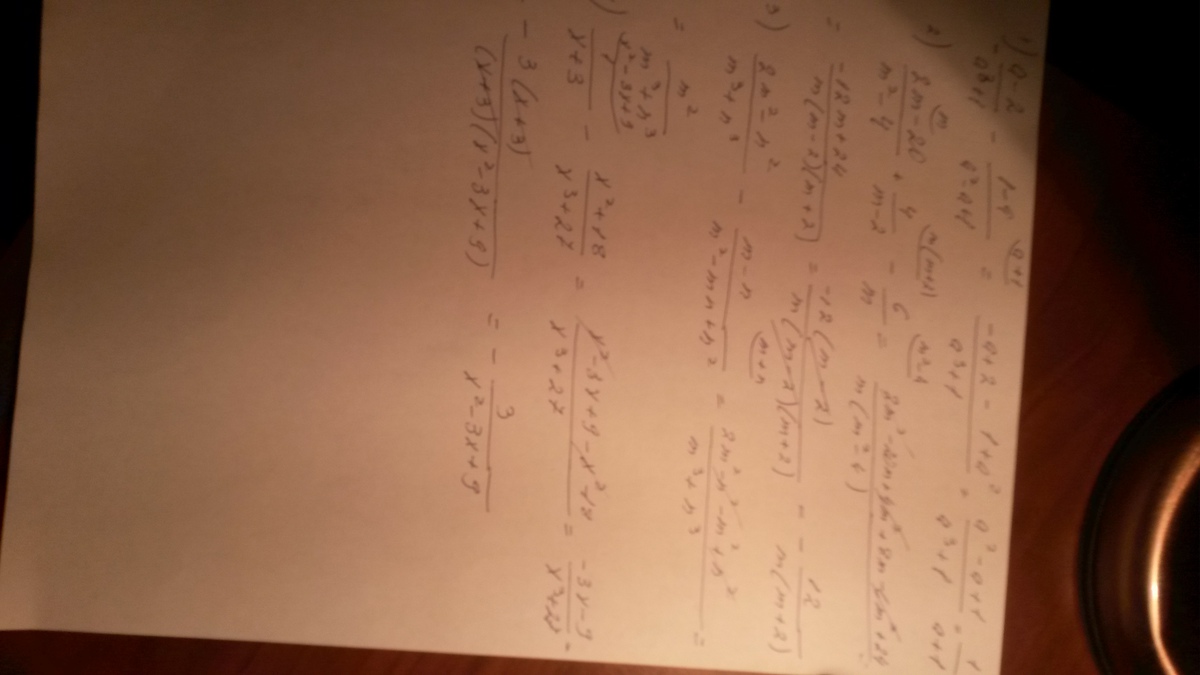 1) - (a-2)/(a³+1) - (1-a)/(a²-a+1) = (-a+2-1+a²)/(a³+1) = (a²-a+1)/(a³+1) = 1/(a+1)
2) (2m-20)/(m²-4) + 4/(m-2) - 6/m = (2m²-20m+4m²+8m-6m²+24)/(m(m²-4)) =
= (-12m+24)/(m(m-2)(m+2)) = (-12(m-2))/(m(m-2)(m+2)) = - 12/(m(m+2))
3) (2m²-n²)/(m³+n³) - (m-n)/(m²-mn+n²) = (2m²-n²-m²+n²)/(m³+n³) =
= m²/(m³+n³)
) 1/(x+3) - (x²+18)/(x³+27) = (x²-3x+9-x²-18)/(x³+27) = (-3x-9)/(x³+27) =
- (3(x+3))/((x+3)(x²-3x+9)) = - 3/(x²-3x+9)